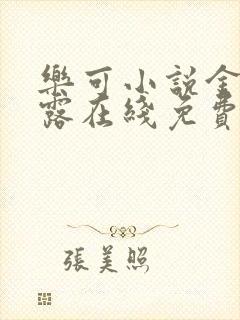 樂可小說金
露在綫免費
張美照